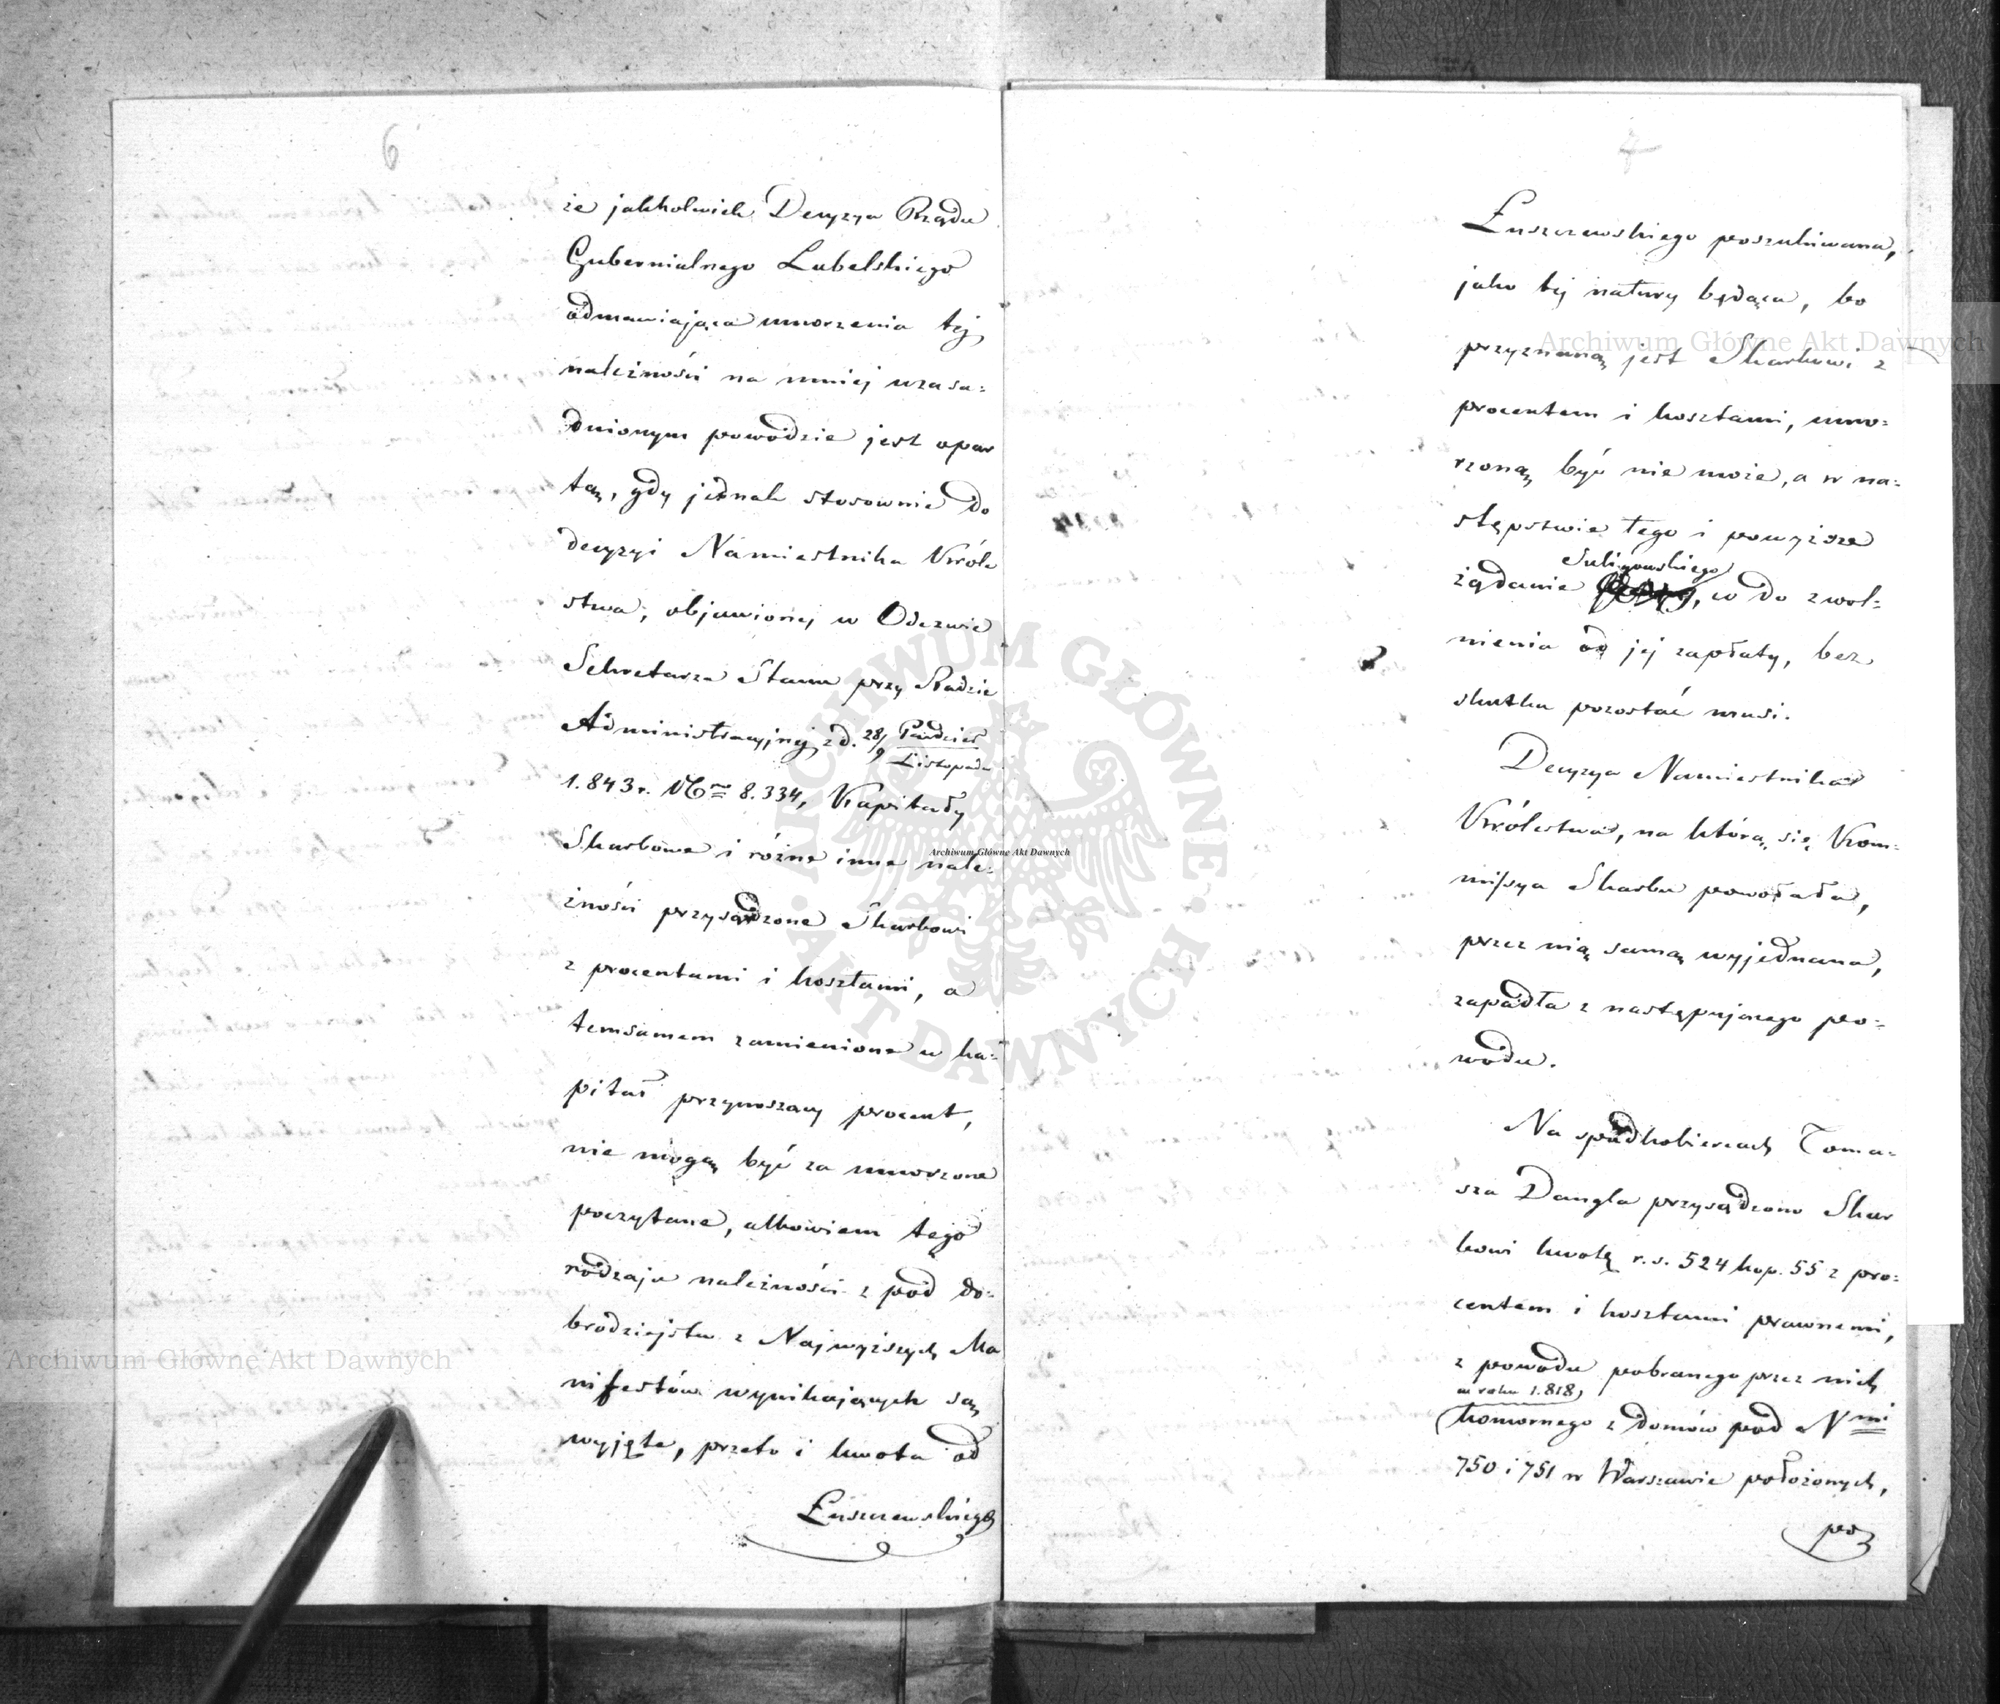 6
że jakkolwiek Decyzya Rządu
Gubernialnego Lubelskiego
odmawiająca umorzenia tej
należności na mniej uzasa:
dnionym powodzie jest opar
tą, gdy jednak stosownie do
decyzyi Namiestnika Króle
stwa, objawionej w Odezwie
Sekretarza Stanu przy Radzie
Administracyjnej z d. 28/9 Paździer Listopada
1.843 r. Nro 8.334, Kapitały
Skarbowe i różne inne nale:
żności przysądzone Skarbowi
z procentami i kosztami, a
temsamem zamienione w ka:
pitał przynoszący procent,
nie mogą być za umorzone
poczytane, albowiem tego
rodzaju należności z pod do:
brodziejstw z Najwyższych Ma
nifestów wynikających są
wyjęte, przeto i kwota od
Łuszczewskiego
7
Łuszczewskiego poszukiwana,
jako tej natury będąca, bo
przyznaną jest Skarbowi z
procentem i kosztami, umo:
rzoną być nie może, a w na:
stępstwie tego i powyższe
Suligowskiego
żądanie, co do zwol:
nienia od jej zapłaty, bez
skutku pozostać musi.
Decyzya Namiestnika
Królestwa, na którą się Kom:
missya Skarbu powołała,
przez nią samą wyjednana,
zapadła z następującego po:
wodu.
Na spadkobiercach Toma:
sza Dangla przysądzono Skar
bowi kwotę r.s. 524 kop. 55 z pro:
centem i kosztami prawnemi,
z powodu pobranego przez nich
w roku 1.818,
komornego z domów pod Nmi
750 i 751 w Warszawie położonych,
po
Archiwum Główne Akt Dawnych
Archiwum Główne Akt Dawnych
Archiwum Główne Akt Dawnych
ARCHIWUM GŁÓWNE
AKT DAWNYCH